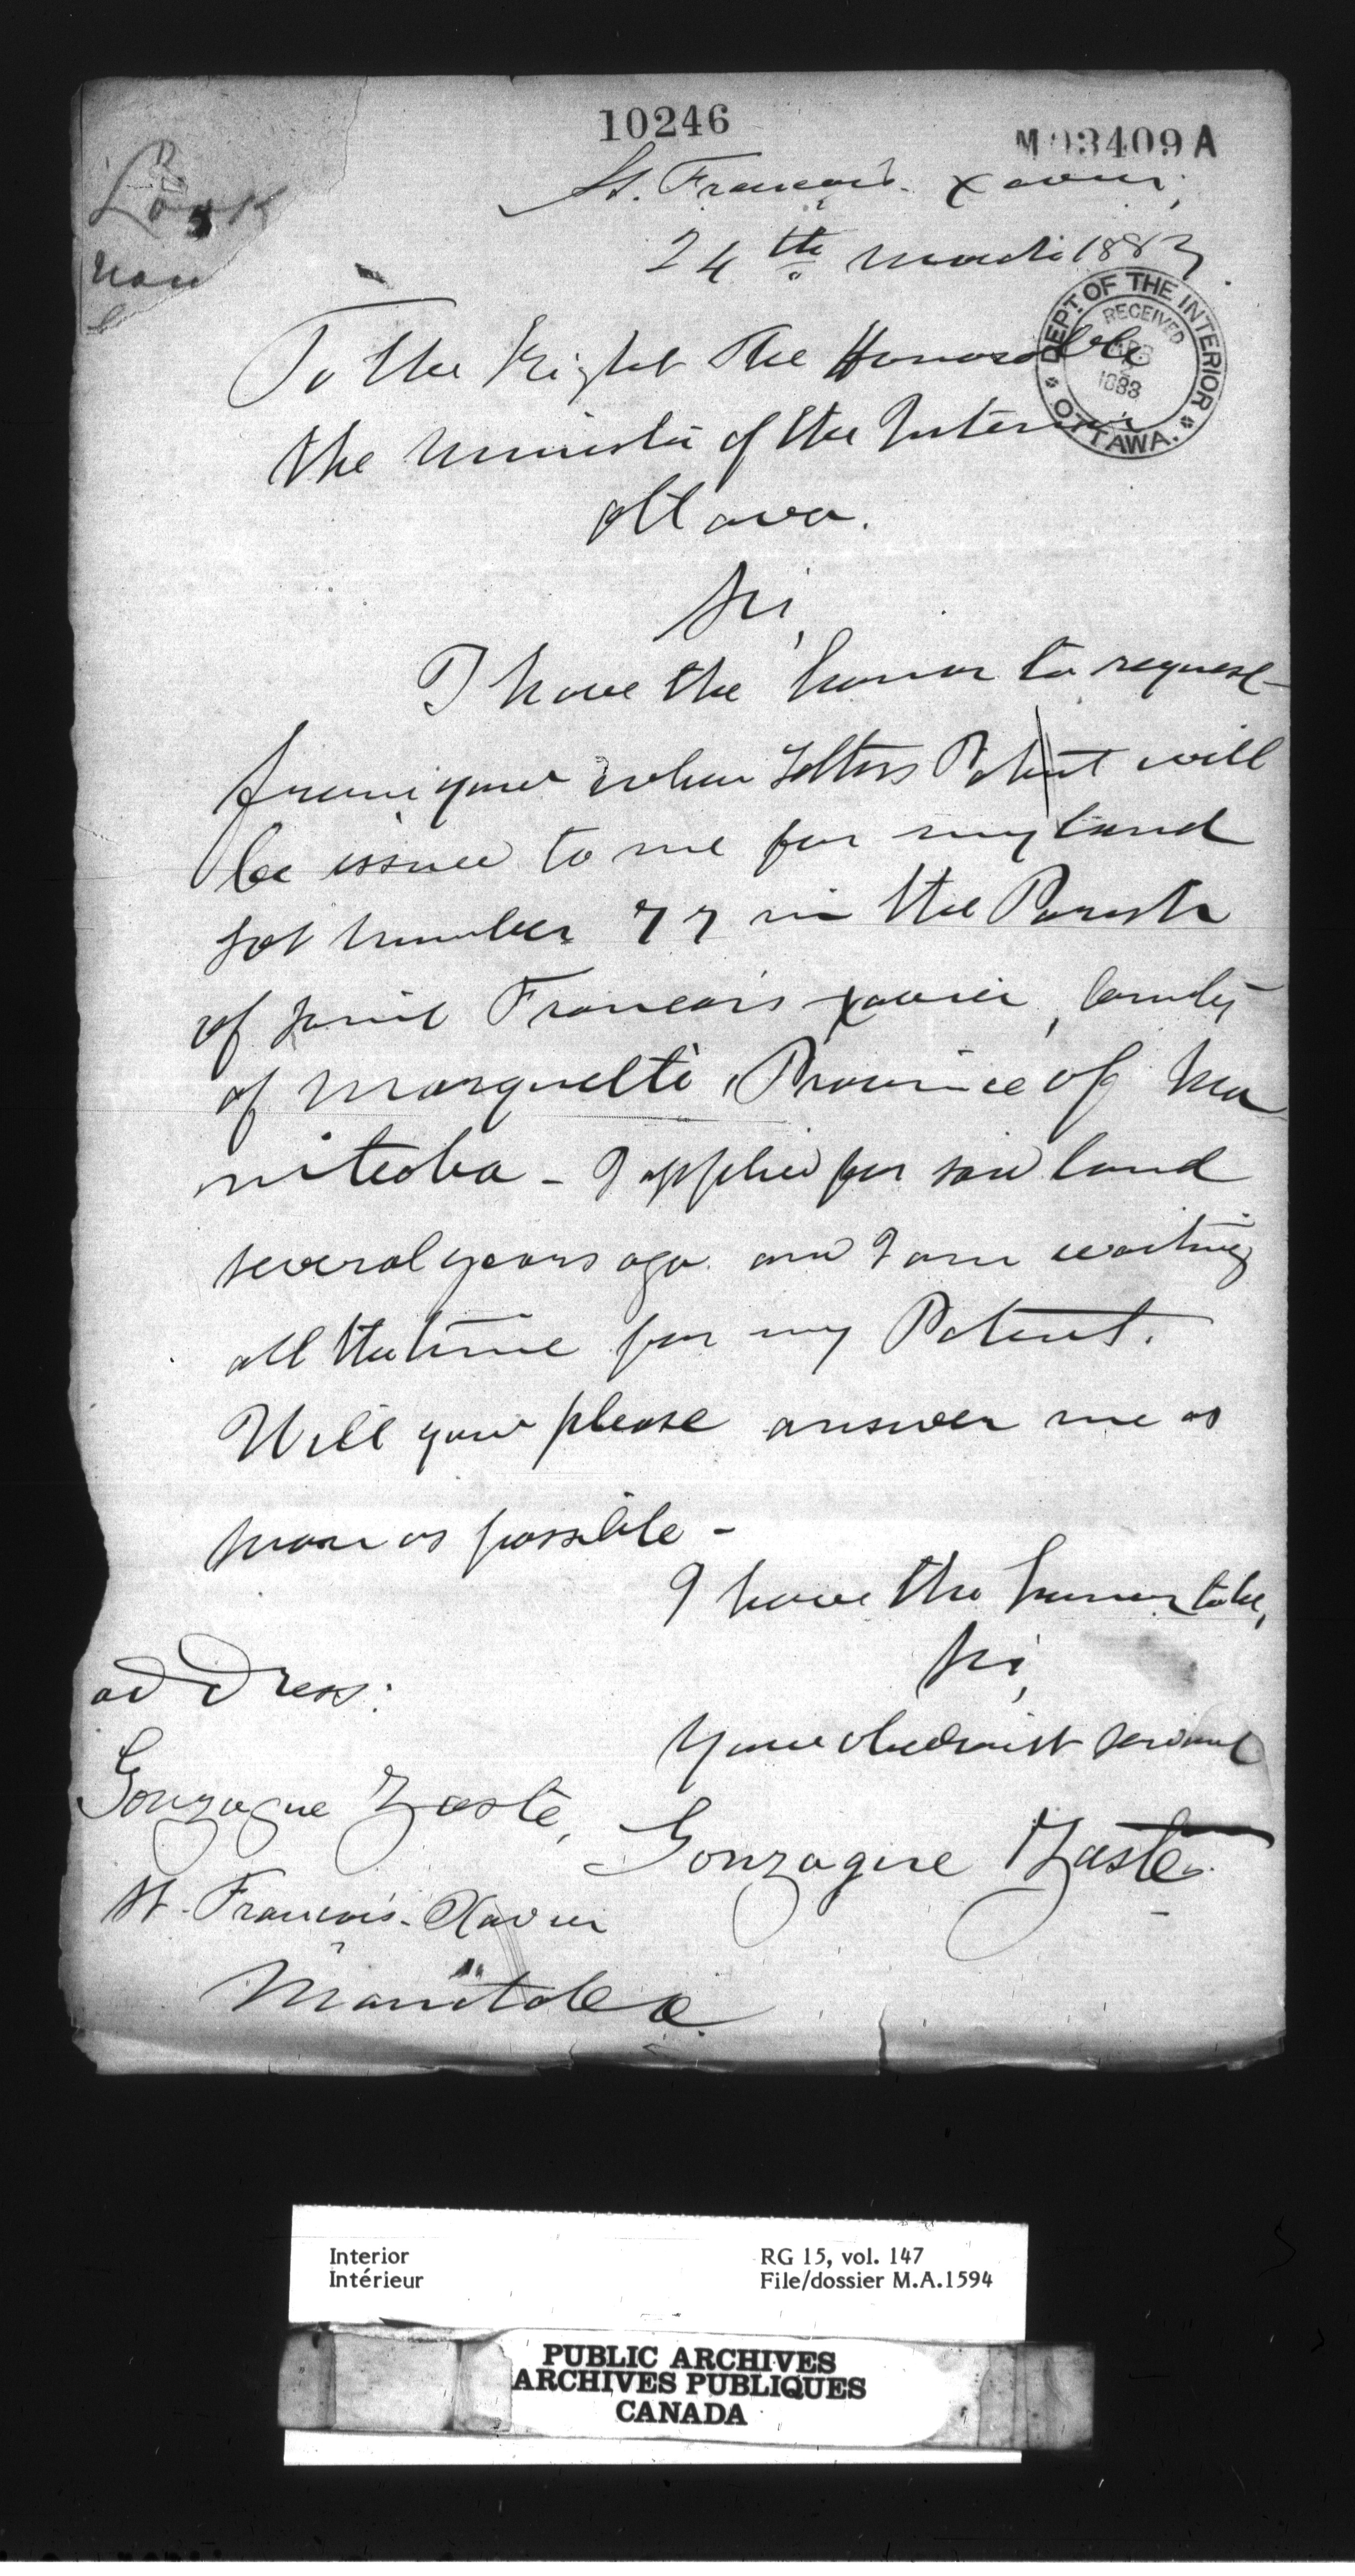 10246
M 03409 A
Look
St. François-Xavier,
24th March 1883
DEPT. OF THE INTERIOR
RECEIVED
1883
OTTAWA.
To the Right The Honorable
the Minister of the Interior
Ottawa.
Sir,
I have the honor to request
from your when Letters Patent will
be issued to me for my land
Lot number 77 in the Parish
of Saint François Xavier, County
of Marquette, Province of Ma
nitoba - I applied for said land
several years ago and I am waiting
all the time for my Patent.
Will your please answer me as
soon as possible -
I have the honor to be,
Sir,
Your obedient servant
Gonzague Zaste
address:
Gonzague Zaste,
St-François-Xavier
Manitoba
Interior
Intérieur
RG 15, vol. 147
File/dossier M.A.1594
PUBLIC ARCHIVES
ARCHIVES PUBLIQUES
CANADA